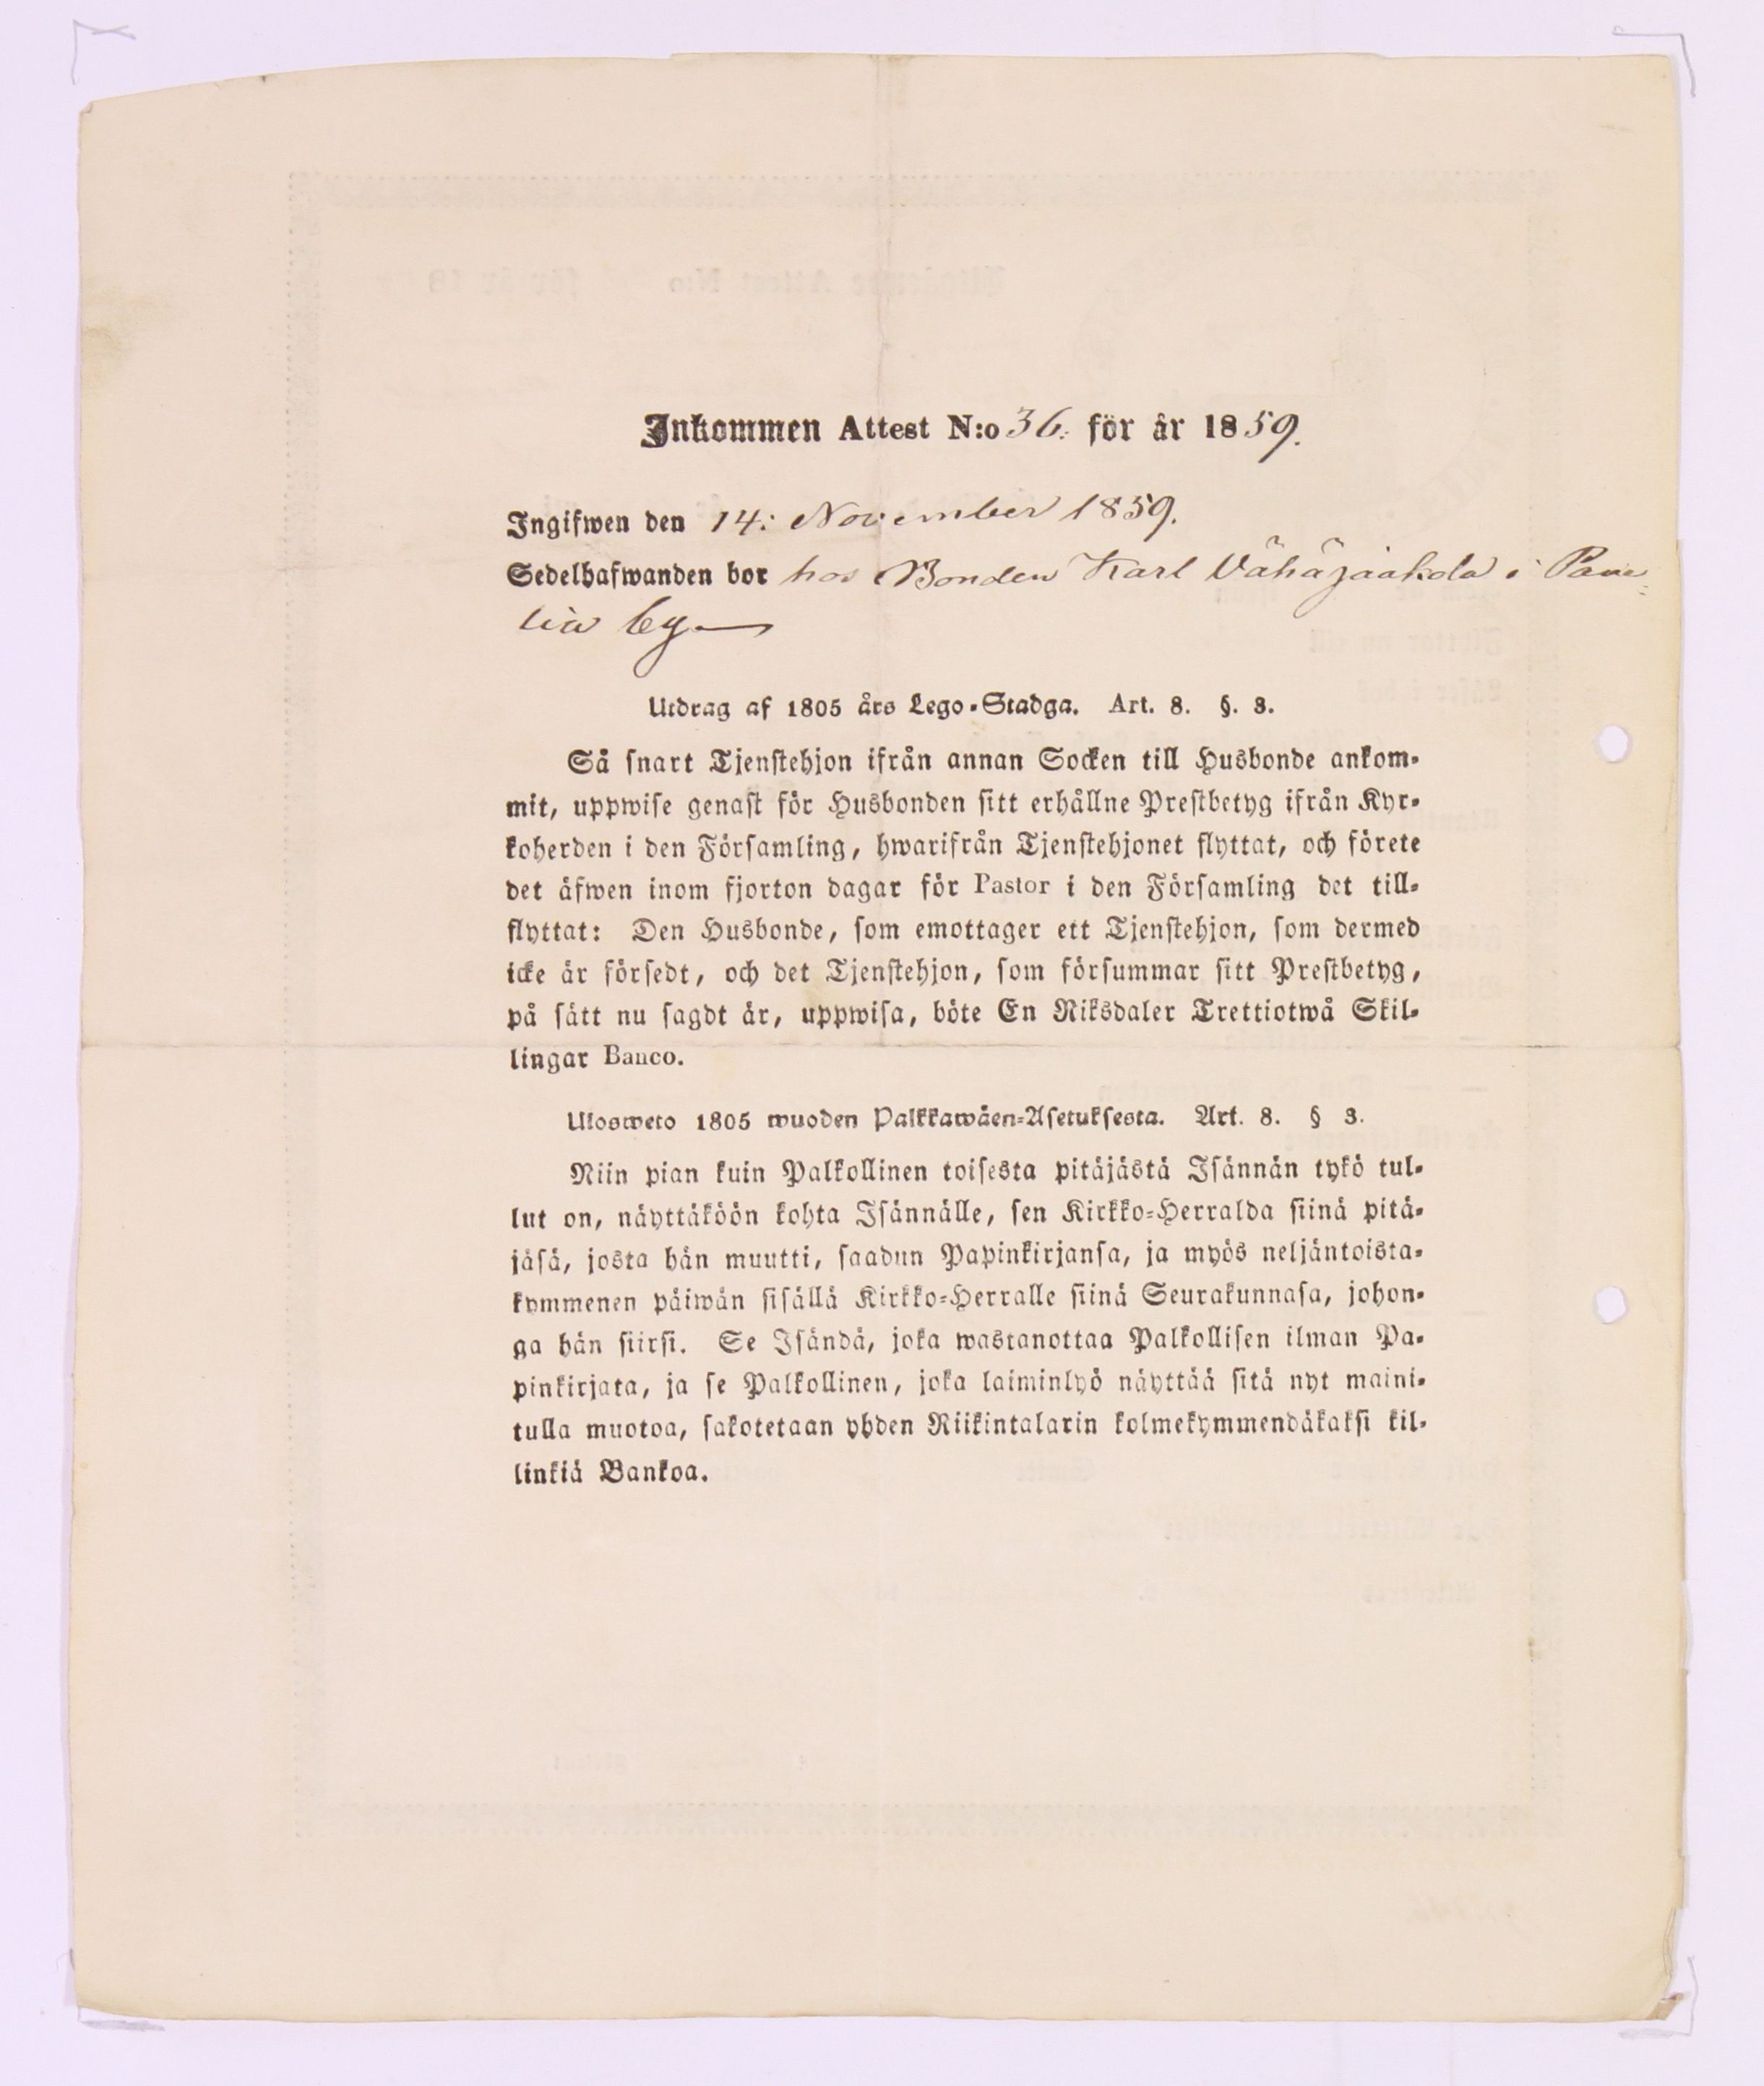 Inkommen Attest N:o 36. för år 1859.
Ingifwen den 14: November 1859.
Sedelhafwanden bor hos Bonden Karl Vähäjaakola i Pane-
lia by
Utdrag af 1805 års Lego-Stadga. Art. 8. §. 3.
Så snart Tjenstehjon ifrån annan Socken till Husbonde ankom-
mit, uppwise genast för Husbonden sitt erhållne Prestbetyg ifrån Kyr-
koherden i den Församling, hwarifrån Tjenstehjonet flyttat, och förete
det äfwen inom fjorton dagar för Pastor i den Församling det till-
flyttat: Den Husbonde, som emottager ett Tjenstehjon, som dermed
icke är försedt, och det Tjenstehjon, som försummar sitt Prestbetyg,
på sätt nu sagdt är, uppwisa, böte En Riksdaler Trettiotwå Skil-
lingar Banco.
Ulosweto 1805 wuoden Palkkawäen-Asetuksesta. Art. 8. § 3.
Niin pian kuin Palkollinen toisesta pitäjästä Isännän tykö tul-
lut on, näyttäköön kohta Isännälle, sen Kirkko-Herralda siinä pitä-
jäsä, josta hän muutti, saadun Papinkirjansa, ja myös neljäntoista-
kymmenen päiwän sisällä Kirkko-Herralle siinä Seurakunnasa, johon-
ga hän siirsi. Se Isändä, joka wastanottaa Palkollisen ilman Pa-
pinkirjata, ja se Palkollinen, joka laiminlyö näyttää sitä nyt maini-
tulla muotoa, sakotetaan yhden Riikintalarin kolmekymmendäkaksi kil-
linkiä Bankoa.